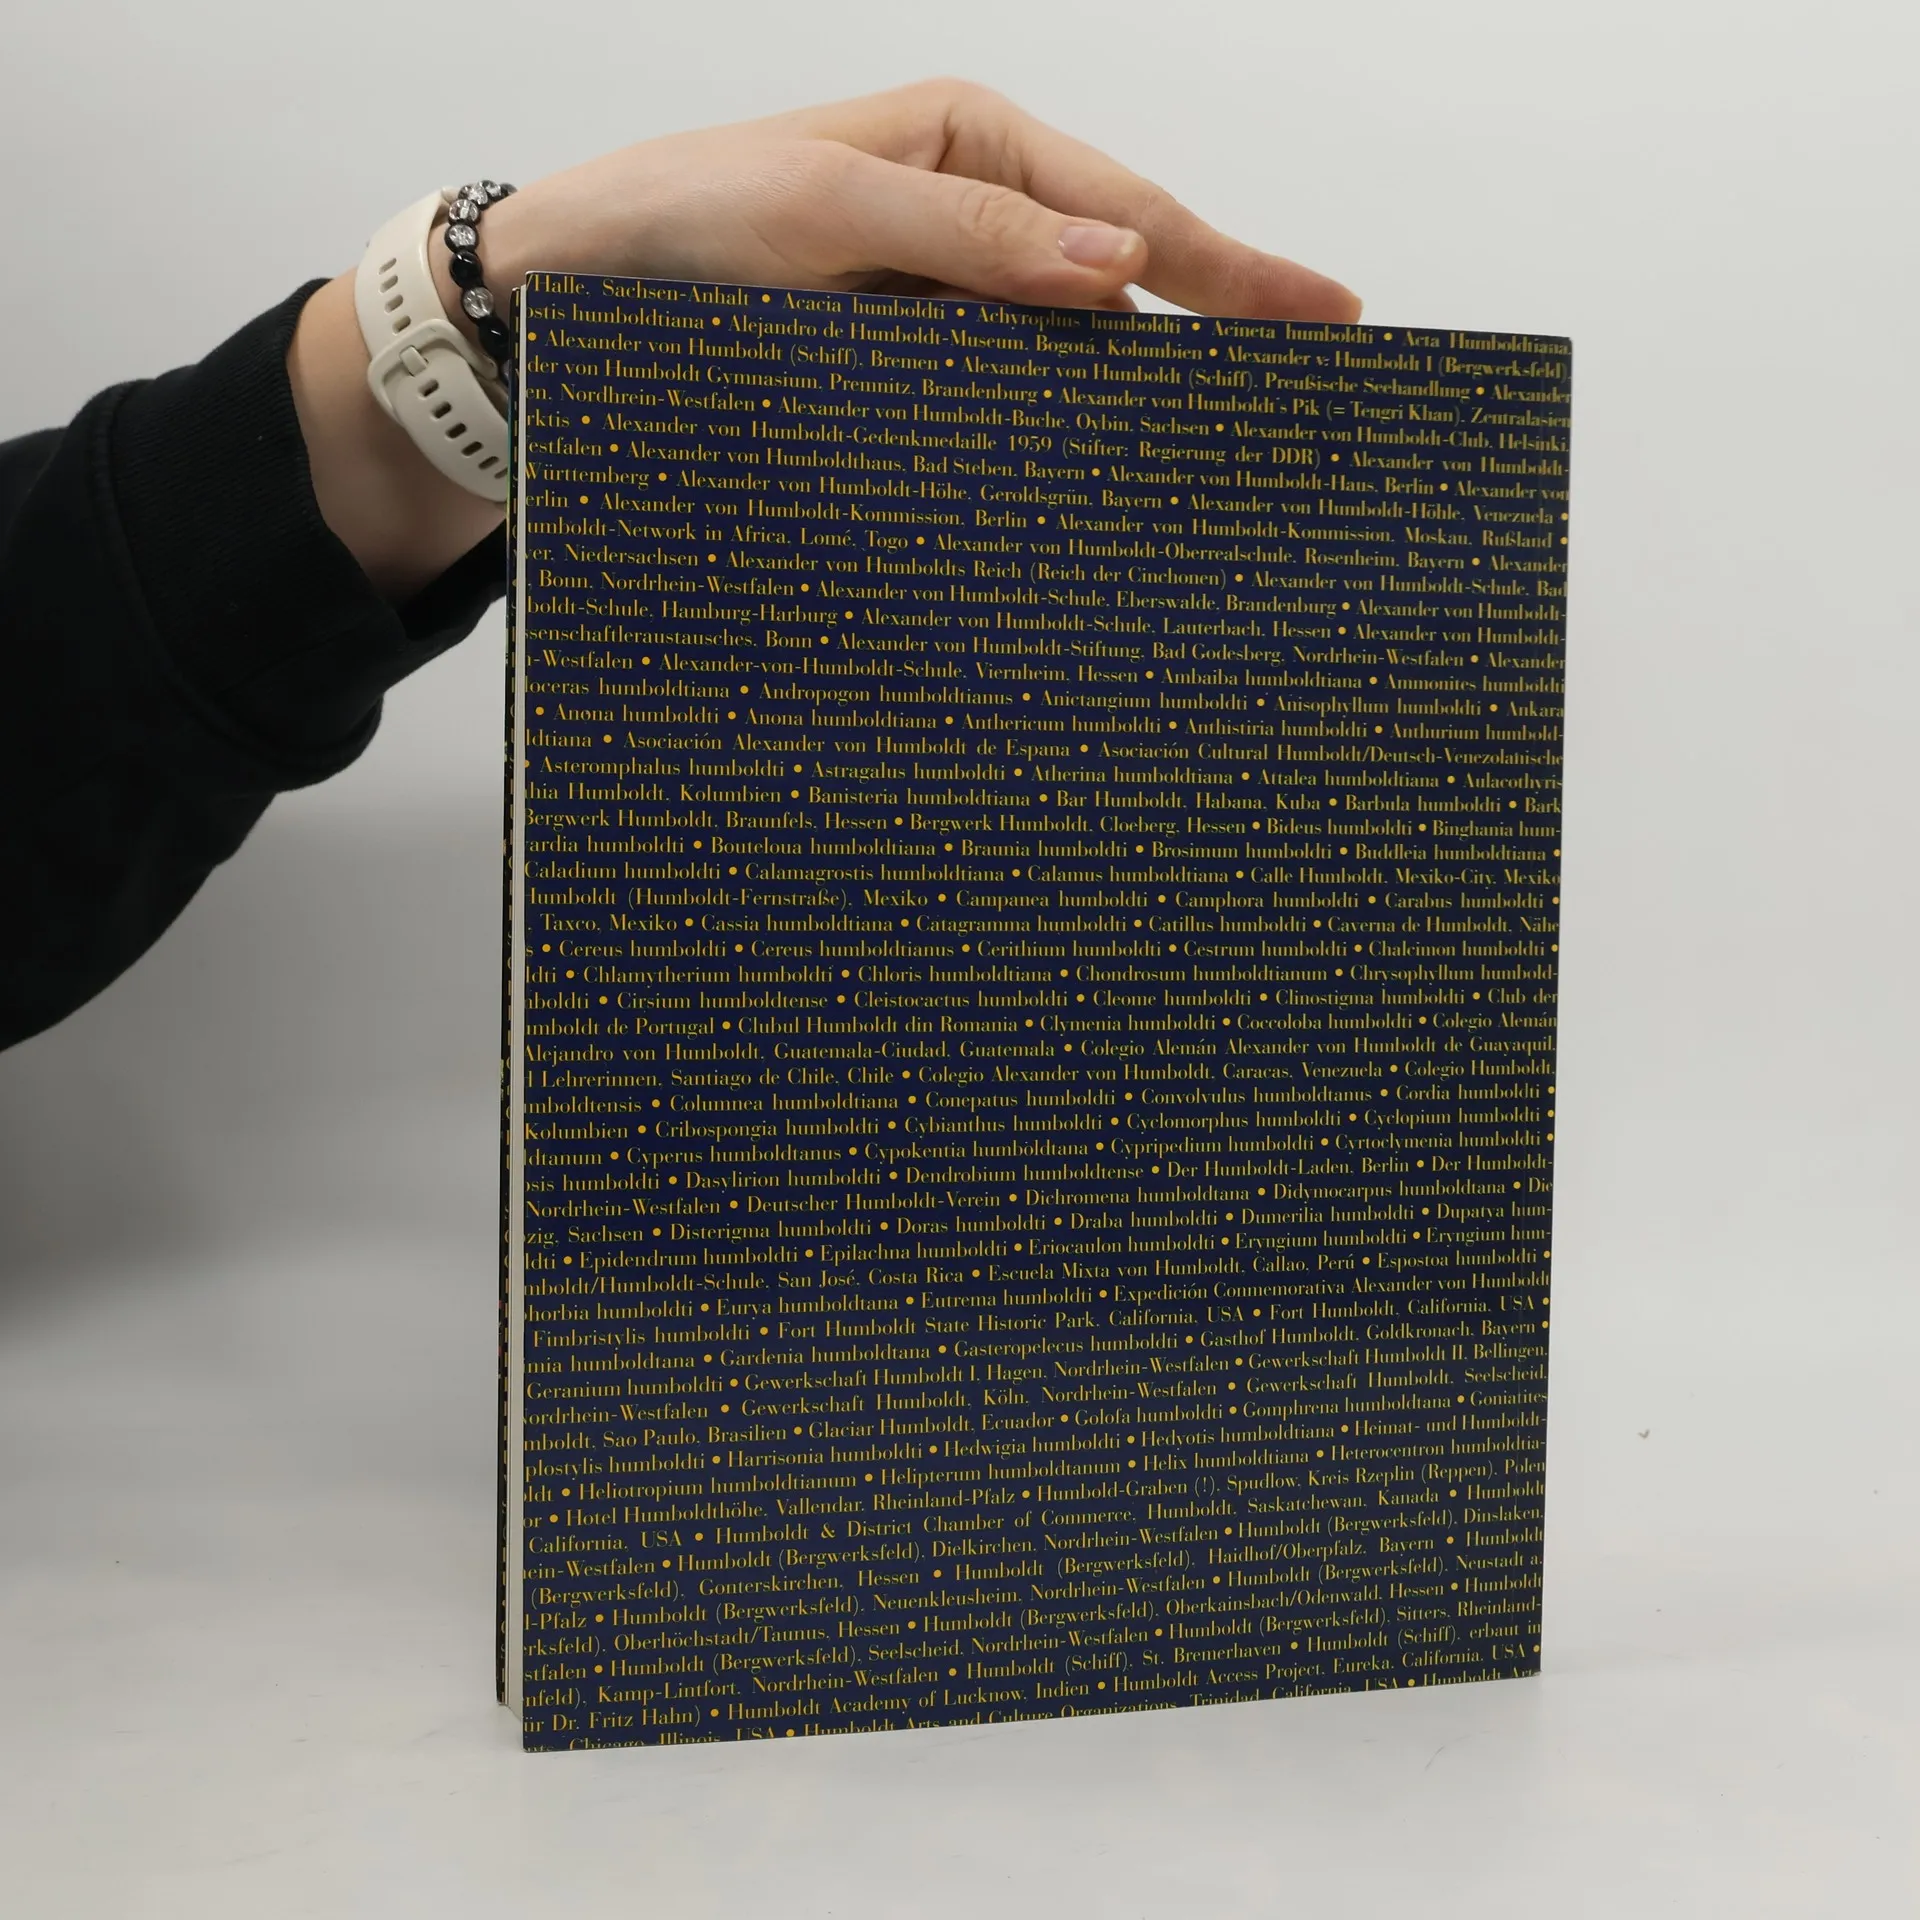 /Halle, Sachsen-Anhalt • Acacia humboldti • Achyrophius humboldti • Acineta humboldti • Acta Humboldtiana,
ostis humboldtiana • Alejandro de Humboldt-Museum, Bogotá, Kolumbien • Alexander v. Humboldt I (Bergwerksfeld),
• Alexander von Humboldt (Schiff), Bremen • Alexander von Humboldt (Schiff), Preußische Seehandlung • Alexander
der von Humboldt Gymnasium, Premnitz, Brandenburg • Alexander von Humboldt's Pik (= Tengri Khan), Zentralasien
en, Nordhrein-Westfalen • Alexander von Humboldt-Buche, Oybin, Sachsen • Alexander von Humboldt-Club, Helsinki,
rktis • Alexander von Humboldt-Gedenkmedaille 1959 (Stifter: Regierung der DDR) • Alexander von Humboldt-
estfalen • Alexander von Humboldthaus, Bad Steben, Bayern • Alexander von Humboldt-Haus, Berlin • Alexander von
Württemberg • Alexander von Humboldt-Höhe, Geroldsgrün, Bayern • Alexander von Humboldt-Höhle, Venezuela •
erlin • Alexander von Humboldt-Kommission, Berlin • Alexander von Humboldt-Kommission, Moskau, Rußland •
umboldt-Network in Africa, Lomé, Togo • Alexander von Humboldt-Oberrealschule, Rosenheim, Bayern • Alexander
ver, Niedersachsen • Alexander von Humboldts Reich (Reich der Cinchonen) • Alexander von Humboldt-Schule, Bad
, Bonn, Nordrhein-Westfalen • Alexander von Humboldt-Schule, Eberswalde, Brandenburg • Alexander von Humboldt-
boldt-Schule, Hamburg-Harburg • Alexander von Humboldt-Schule, Lauterbach, Hessen • Alexander von Humboldt-
ssenschaftleraustausches, Bonn • Alexander von Humboldt-Stiftung, Bad Godesberg, Nordrhein-Westfalen • Alexander
n-Westfalen • Alexander-von-Humboldt-Schule, Viernheim, Hessen • Ambaiba humboldtiana • Ammonites humboldti
loceras humboldtiana • Andropogon humboldtianus • Anictangium humboldti • Anisophyllum humboldti • Ankara
• Anona humboldti • Anona humboldtiana • Anthericum humboldti • Anthistiria humboldti • Anthurium humbold-
ldtiana • Asociación Alexander von Humboldt de Espana • Asociación Cultural Humboldt/Deutsch-Venezolanische
• Asteromphalus humboldti • Astragalus humboldti • Atherina humboldtiana • Attalea humboldtiana • Aulacothyris
thia Humboldt, Kolumbien • Banisteria humboldtiana • Bar Humboldt, Habana, Kuba • Barbula humboldti • Bark
Bergwerk Humboldt, Braunfels, Hessen • Bergwerk Humboldt, Cloeberg, Hessen • Bideus humboldti • Binghania hum-
ardia humboldti • Bouteloua humboldtiana • Braunia humboldti • Brosimum humboldti • Buddleia humboldtiana •
Caladium humboldti • Calamagrostis humboldtiana • Calamus humboldtiana • Calle Humboldt, Mexiko-City, Mexiko
Humboldt (Humboldt-Fernstraße), Mexiko • Campanea humboldti • Camphora humboldti • Carabus humboldti •
, Taxco, Mexiko • Cassia humboldtiana • Catagramma humboldti • Catillus humboldti • Caverna de Humboldt, Nähe
s • Cereus humboldti • Cereus humboldtianus • Cerithium humboldti • Cestrum humboldti • Chalcimon humboldti •
ldti • Chlamytherium humboldti • Chloris humboldtiana • Chondrosum humboldtianum • Chrysophyllum humbold-
mboldti • Cirsium humboldtense • Cleistocactus humboldti • Cleome humboldti • Clinostigma humboldti • Club der
umboldt de Portugal • Clubul Humboldt din Romania • Clymenia humboldti • Coccoloba humboldti • Colegio Alemán
Alejandro von Humboldt, Guatemala-Ciudad, Guatemala • Colegio Alemán Alexander von Humboldt de Guayaquil,
d Lehrerinnen, Santiago de Chile, Chile • Colegio Alexander von Humboldt, Caracas, Venezuela • Colegio Humboldt,
umboldtensis • Columnea humboldtiana • Conepatus humboldti • Convolvulus humboldtanus • Cordia humboldti •
Kolumbien • Cribospongia humboldti • Cybianthus humboldti • Cyclomorphus humboldti • Cyclopium humboldti •
ldtanum • Cyperus humboldtanus • Cypokentia humboldtana • Cypripedium humboldti • Cyrtoclymenia humboldti •
osis humboldti • Dasylirion humboldti • Dendrobium humboldtense • Der Humboldt-Laden, Berlin • Der Humboldt-
Nordrhein-Westfalen • Deutscher Humboldt-Verein • Dichromena humboldtana • Didymocarpus humboldtana • Die
zig, Sachsen • Disterigma humboldti • Doras humboldti • Draba humboldti • Dumerilia humboldti • Dupatya hum-
ldti • Epidendrum humboldti • Epilachna humboldti • Eriocaulon humboldti • Eryngium humboldti • Eryngium hum-
mboldt/Humboldt-Schule, San José, Costa Rica • Escuela Mixta von Humboldt, Callao, Perú • Espostoa humboldti •
phorbia humboldti • Eurya humboldtana • Eutrema humboldti • Expedición Conmemorativa Alexander von Humboldt
Fimbristylis humboldti • Fort Humboldt State Historic Park, California, USA • Fort Humboldt, California, USA •
mia humboldtana • Gardenia humboldtana • Gasteropelecus humboldti • Gasthof Humboldt, Goldkronach, Bayern •
Geranium humboldti • Gewerkschaft Humboldt I, Hagen, Nordrhein-Westfalen • Gewerkschaft Humboldt II, Bellingen,
Nordrhein-Westfalen • Gewerkschaft Humboldt, Köln, Nordrhein-Westfalen • Gewerkschaft Humboldt, Seelscheid,
mboldt, Sao Paulo, Brasilien • Glaciar Humboldt, Ecuador • Golofa humboldti • Gomphrena humboldtana • Goniatites
plostylis humboldti • Harrisonia humboldti • Hedwigia humboldti • Hedyotis humboldtiana • Heimat- und Humboldt-
oldt • Heliotropium humboldtianum • Helipterum humboldtanum • Helix humboldtiana • Heterocentron humboldtia-
or • Hotel Humboldthöhe, Vallendar, Rheinland-Pfalz • Humbold-Graben (!), Spudlow, Kreis Rzeplin (Reppen), Polen
California, USA • Humboldt & District Chamber of Commerce, Humboldt, Saskatchewan, Kanada • Humboldt
hein-Westfalen • Humboldt (Bergwerksfeld), Dielkirchen, Nordrhein-Westfalen • Humboldt (Bergwerksfeld), Dinslaken,
(Bergwerksfeld), Gonterskirchen, Hessen • Humboldt (Bergwerksfeld), Haidhof/Oberpfalz, Bayern • Humboldt
d-Pfalz • Humboldt (Bergwerksfeld), Neuenkleusheim, Nordrhein-Westfalen • Humboldt (Bergwerksfeld), Neustadt a.
rksfeld), Oberhöchstadt/Taunus, Hessen • Humboldt (Bergwerksfeld), Oberkainsbach/Odenwald, Hessen • Humboldt
stfalen • Humboldt (Bergwerksfeld), Seelscheid, Nordrhein-Westfalen • Humboldt (Bergwerksfeld), Sitters, Rheinland-
nfeld), Kamp-Lintfort, Nordrhein-Westfalen • Humboldt (Schiff), St. Bremerhaven • Humboldt (Schiff), erbaut in
ür Dr. Fritz Hahn) • Humboldt Academy of Lucknow, Indien • Humboldt Access Project, Eureka, California, USA •
nts, Chicago, Illinois, USA • Humboldt Arts and Culture Organizations, Trinidad, California, USA • Humboldt Arts